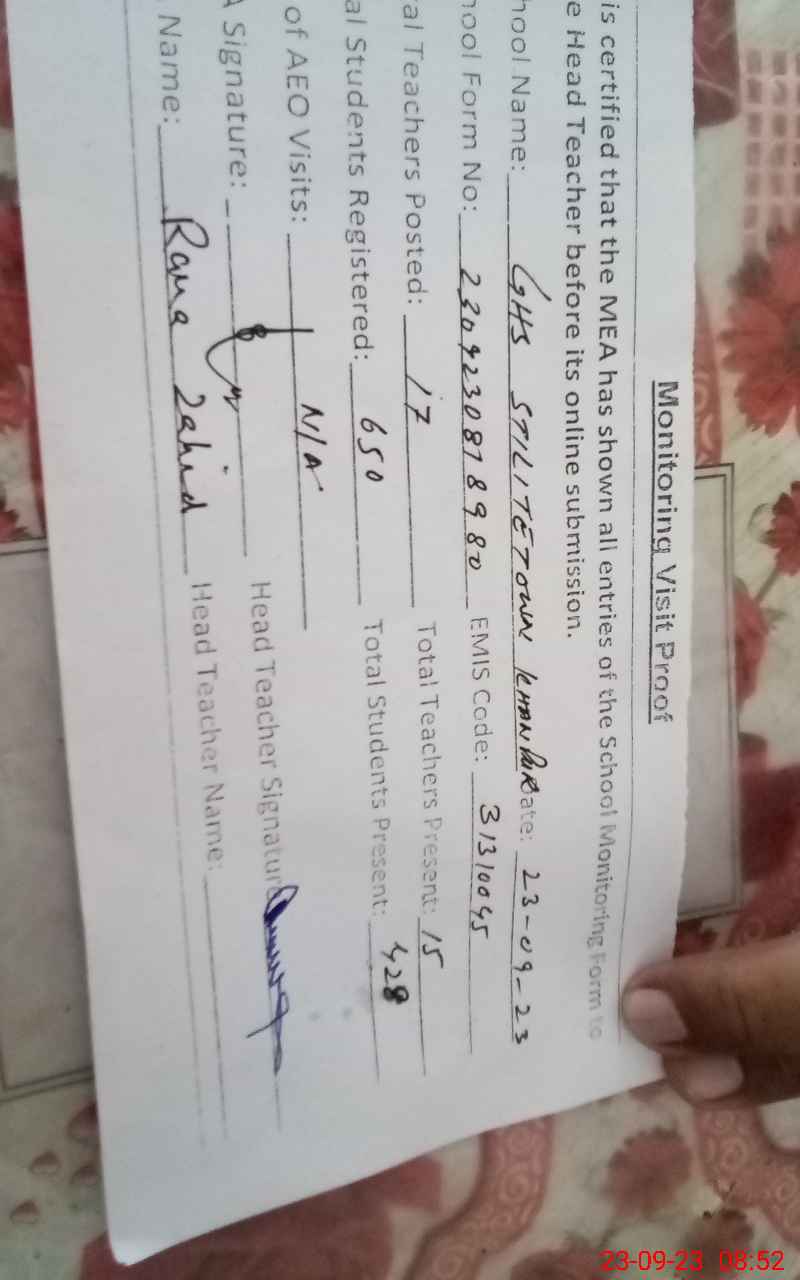 Monitoring Visit Proof
is certified that the MEA has shown all entries of the School Monitoring Form to
e Head Teacher before its online submission.
hool Name: GHS STILITETOWN KHANPUR Date: 23-09-23
hool Form No: 2309230878980 EMIS Code: 31310045
al Teachers Posted: 17 Total Teachers Present: 15
al Students Registered: 650 Total Students Present: 428
of AEO Visits: N/A
A Signature: Head Teacher Signature
Name: Rana Zahid Head Teacher Name:
23-09-23 08:52